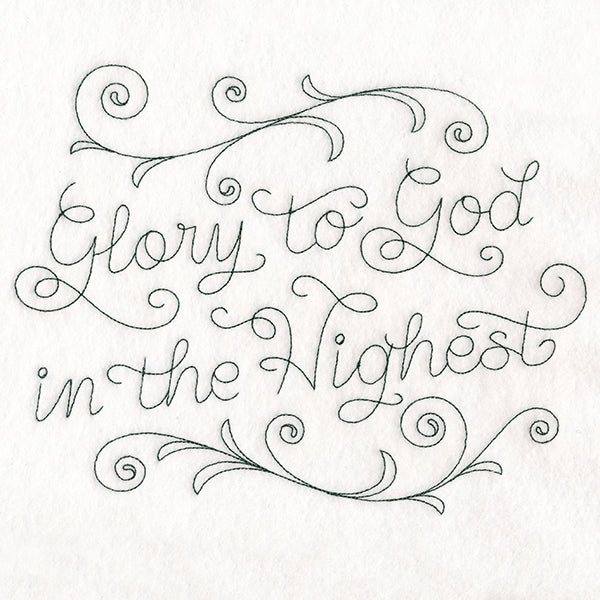 Glory to God
in the Highest